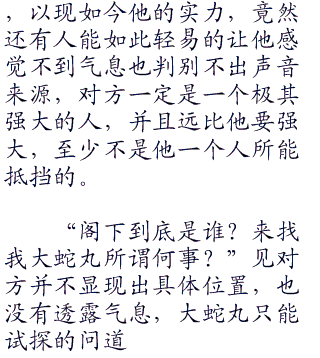 ，以现如今他的实力，竟然
还有人能如此轻易的让他感
觉不到气息也判别不出声音
来源，对方一定是一个极其
强大的人，并且远比他要强
大，至少不是他一个人所能
抵挡的。
“阁下到底是谁？来找
我大蛇丸所谓何事？”见对
方并不显现出具体位置，也
没有透露气息，大蛇丸只能
试探的问道